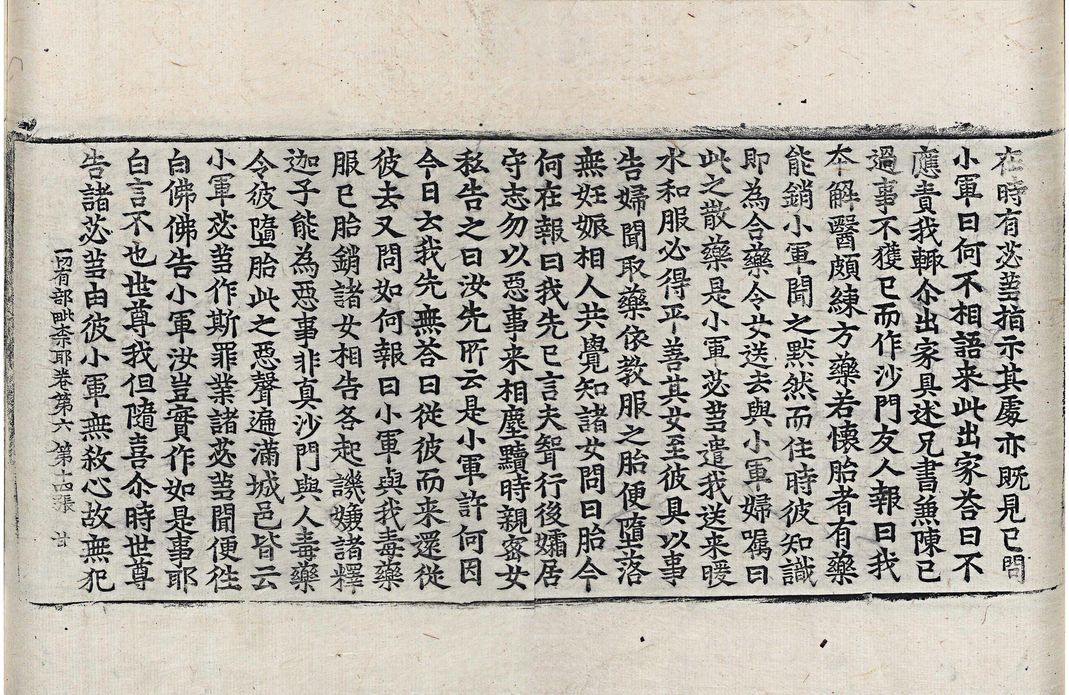 在時有苾芻指示其處亦旣見已問
小軍曰何不相語来此出家荅曰不
應責我輙尒出家具述兄書兼陳己
過事不獲已而作沙門友人報曰我
夲解醫頗練方藥若懷胎者有藥
能銷小軍聞之默然而住時彼知識
即為合藥令女送去與小軍婦囑曰
此之散藥是小軍苾芻遣我送来暖
水和服必得平善其女至彼具以事
告婦聞取藥依教服之胎便墮落
無妊娠相人共覺知諸女問曰胎今
何在報曰我先已言夫聟行後孀居
守志勿以惡事来相塵黷時親密女
私告之曰汝先所云是小軍許何因
今日云我先無荅曰従彼而来還従
彼去又問如何報曰小軍與我毒藥
服已胎銷諸女相告各起譏嫌諸釋
迦子能為惡事非真沙門與人毒藥
令彼墮胎此之惡聲遍滿城邑皆云
小軍苾芻作斯罪業諸苾芻聞便徃
白佛佛告小軍汝豈實作如是事耶
白言不也世尊我但隨喜尒時世尊
告諸苾芻由彼小軍無敎心故無犯
一切有部毗柰耶卷第六 第十四張 甘